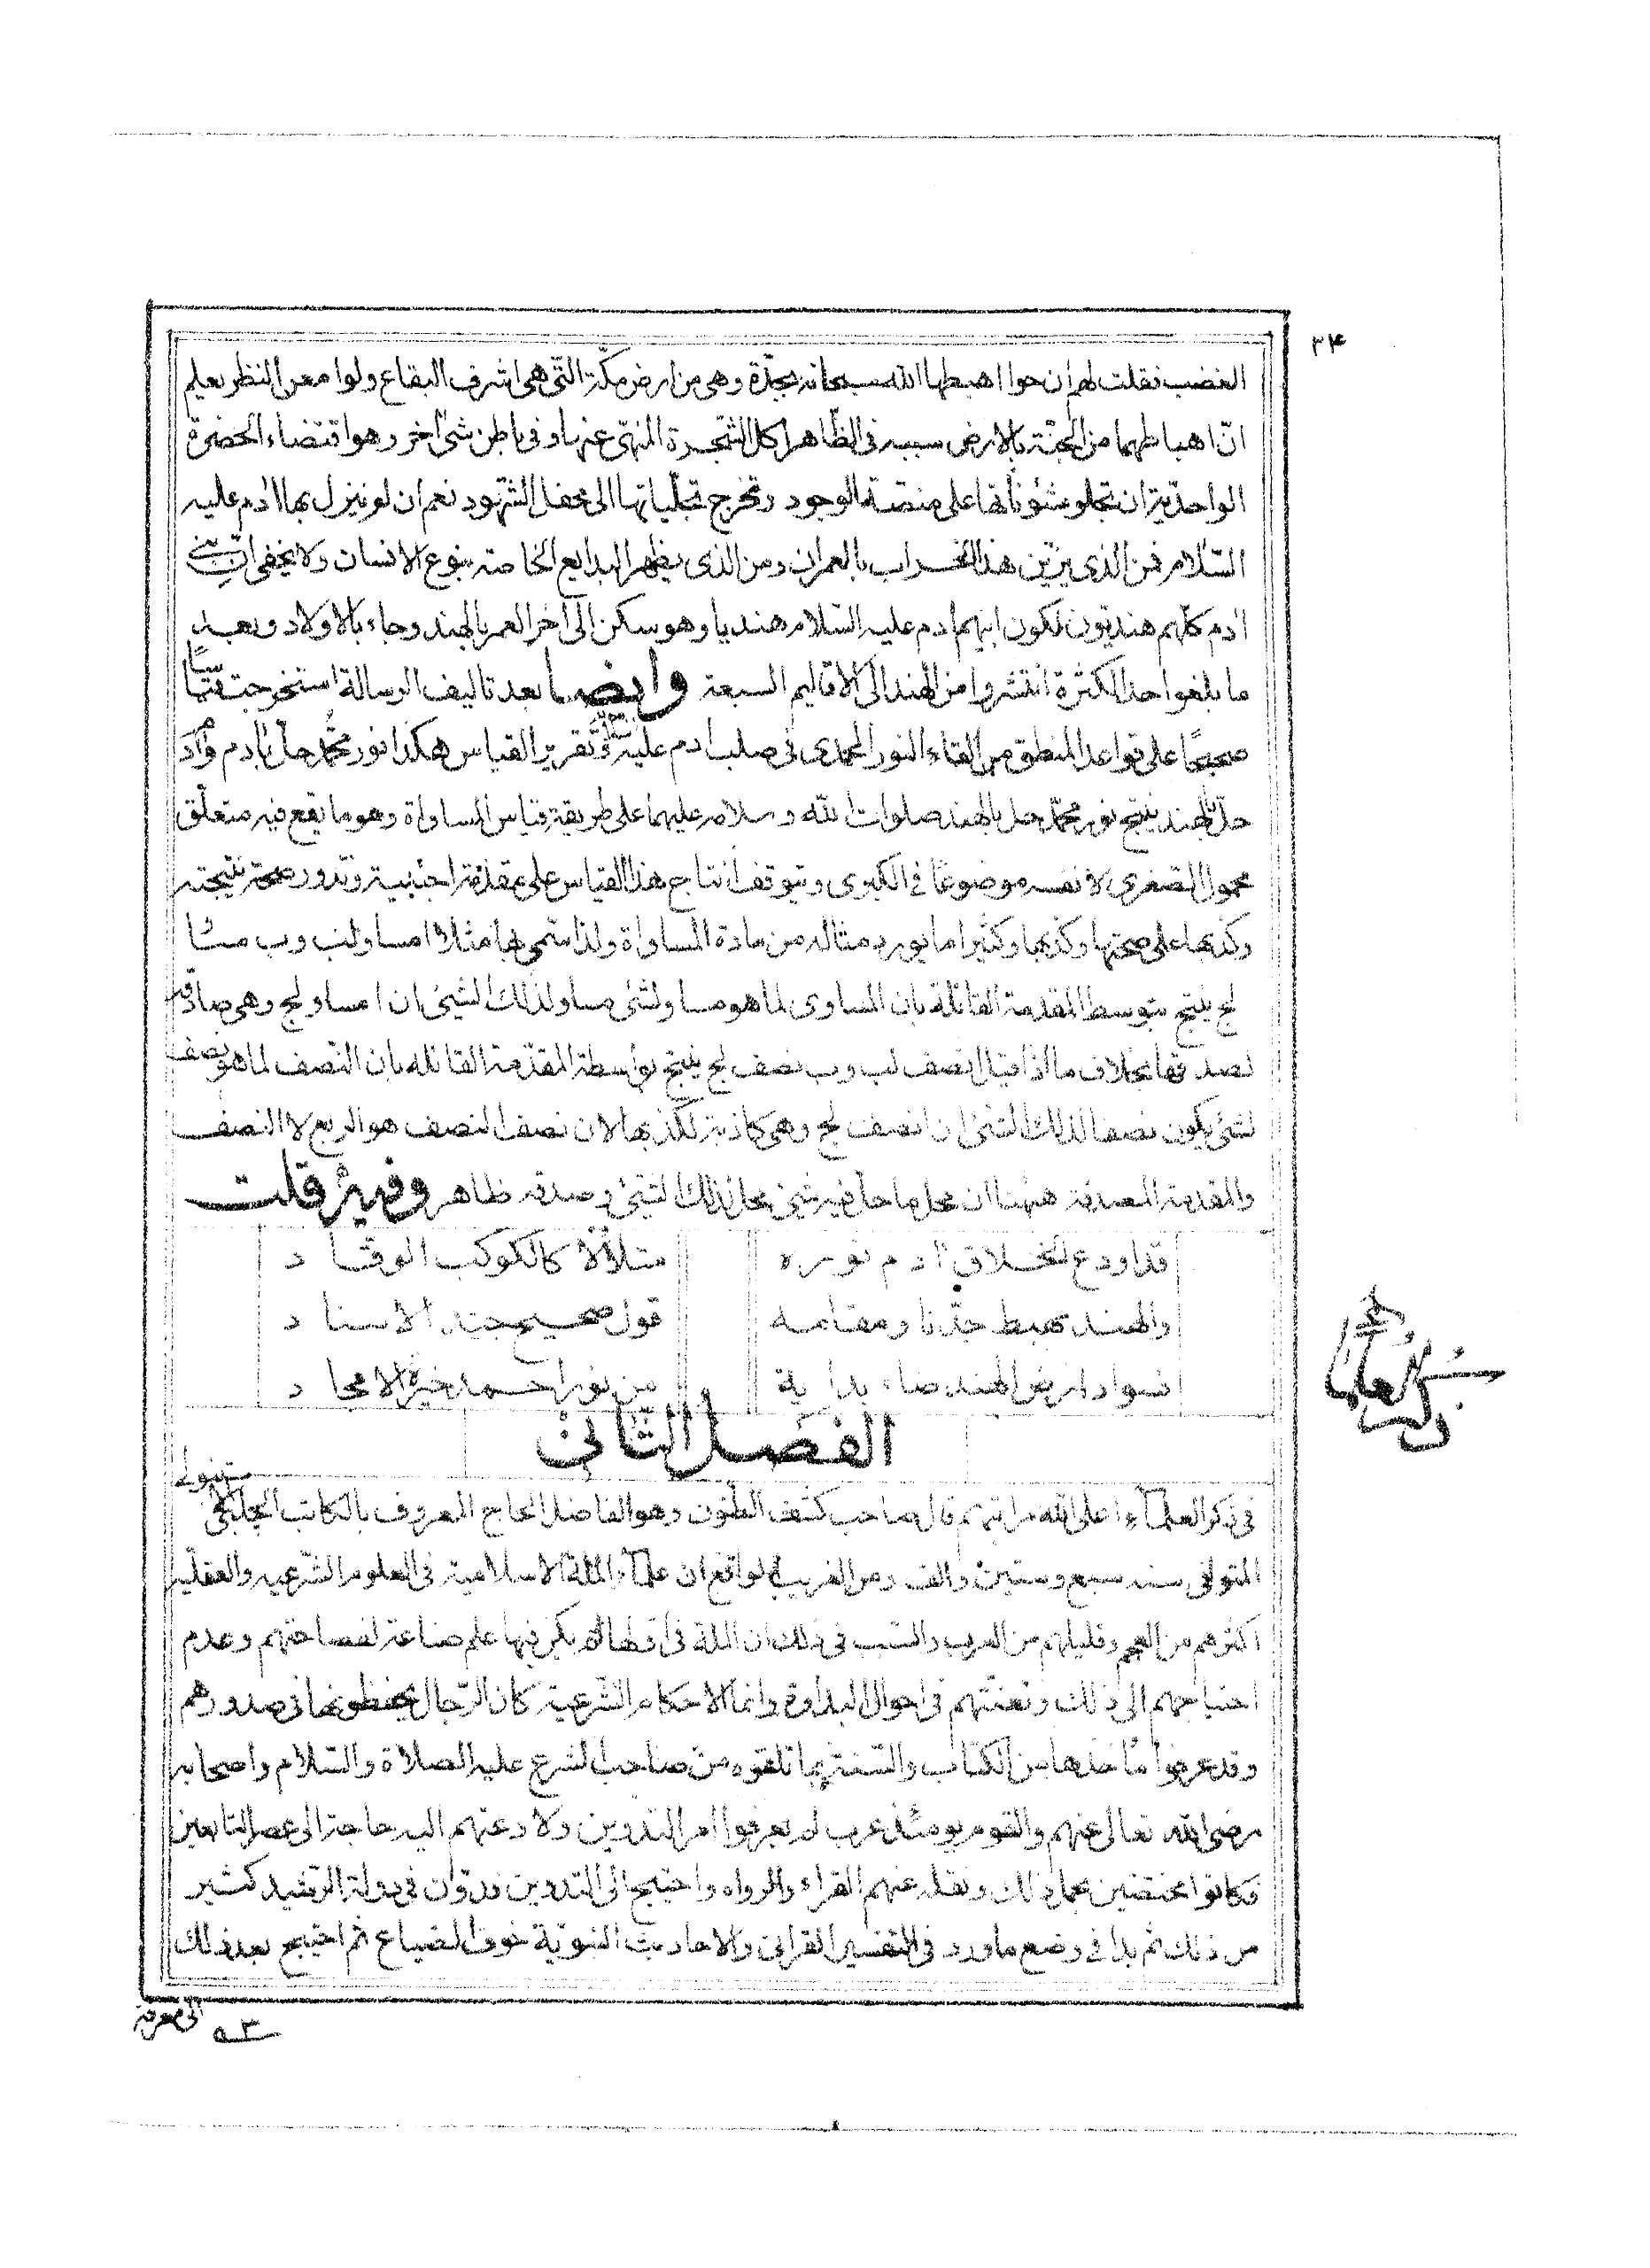 ٣٤
الغضب فقلت لهم ان حوا اهبطها الله سبحانه بجدّة وهى من ارض مكّة التّى هى اشرف البقاع ولو امعن النظر يعلم
انّ اهباطهما من الجنّة بالارض سببه فى الظّاهر اكل الشّجرة المنهىّ عنها و فى باطن شئ آخر وهو اقتضاء الحضرة
الواحديّة ان تجلو شئوناتها على منصّة الوجود وتخرج تجلّياتها الى محفل الشّهود نعم ان لو ينزل بها آدم عليه
السّلام فمن الذى يزيّن هذا الخراب بالعمران ومن الذى يظهر البدايع الخاصة بنوع الانسان ولا يخفى ان بنى
آدم كلّهم هنديّون لكون ابيهم آدم عليه السّلام هنديا وهو سكن الى آخر العمر بالهند وجاء بالاولاد وبعد
ما بلغوا حدّ الكثرة انتشروا من الهند الى الاقاليم السبعة وايضا بعد تاليف الرسالة استخرجت
صحيحًا على قواعد المنطق من القاء النور المحمدى فى صلب ادم عليه وتقرير القياس هكذا نور محمّد حلّ بآدم وآدم
حلّ بالهند ينتج نور محمّد حل بالهند صلوات الله وسلامه عليهما على طريقة قياس المساواة وهو ما يقع فيه متعلّق
محمول الصغرى لا نفسه موضوعًا فى الكبرى ويتوقف انتاج هذا القياس على مقدّمة اجنبية وتدور صحة نتيجته
وكذبها على صحتها وكذبها وكثيرا ما يورد مثاله من مادة المساواة ولذا سمّى بها مثلا ا مساو لب وب مساو
لج ينتج بتوسط المقدمة القائلة بان المساوى لما هو مساو لشئ مساو لذلك الشيئ ان ا مساو لج وهى صادقة
لصدقها بخلاف ما اذا قيل ا نصف لب وب نصف لج ينتج بواسطة المقدّمة القائله بان النّصف لما هو نصف
لشئ يكون نصفا لذلك الشئ ان ا نصف لج وهى كاذبة لكذبها لان نصف النصف هو الربع لا النصف
والمقدمة المصدقة ههنا ان محل ما حلّ فيه شئ محل لذلك الشيئ وصدقه ظاهر وفيه قلت
قد اودع الخلاق آدم نوره متلألأ كالكوكب الوقّاد
والهند مهبط جدّنا ومقامه قول صحيح جيّد الاسناد
فسواد ارض الهند ضاء بداية من نور احمد خيرة الامجاد
الفصل الثّانى
فى ذكر العلمآء اعلى الله مراتبهم قال صاحب كشف الظّنون وهو الفاضل الحاج المعروف بالكاتب الچلبى
المتوفى سنه سبع وستين والف ومن الغريب الواقع ان علمآء الملّة الاسلامية فى العلوم الشّرعيه والعقليّه
اكثرهم من العجم وقليلهم من العرب والسّبب فى ذلك ان الملة فى اولها لم يكن فيها علم صناعة لفصاحتهم وعدم
احتياجهم الى ذلك فى احوال البداوة وانما الاحكام الشّرعية كان الرّجال يحفظونها فى صدورهم
وقد عرفوا مأخذها من الكتاب والسّنة بما تلقوه من صاحب الشرع عليه الصلاة والسّلام واصحابه
رضى الله تعالى عنهم والقوم يومئذ عرب لم يعرفوا امر التدوين ولا دعتهم اليه حاجة الى عصر التابعين
فكانوا مختصّين بحمل ذلك ونقله عنهم القراء والرواه واحتيج الى التدوين ودوّن فى دولة الرّشيد كثير
من ذلك ثم بدا فى وضع ما ورد فى التفسير القرانى والاحاديث النبوية خوف الضياع ثم احتيج بعد ذلك
الى معرفة